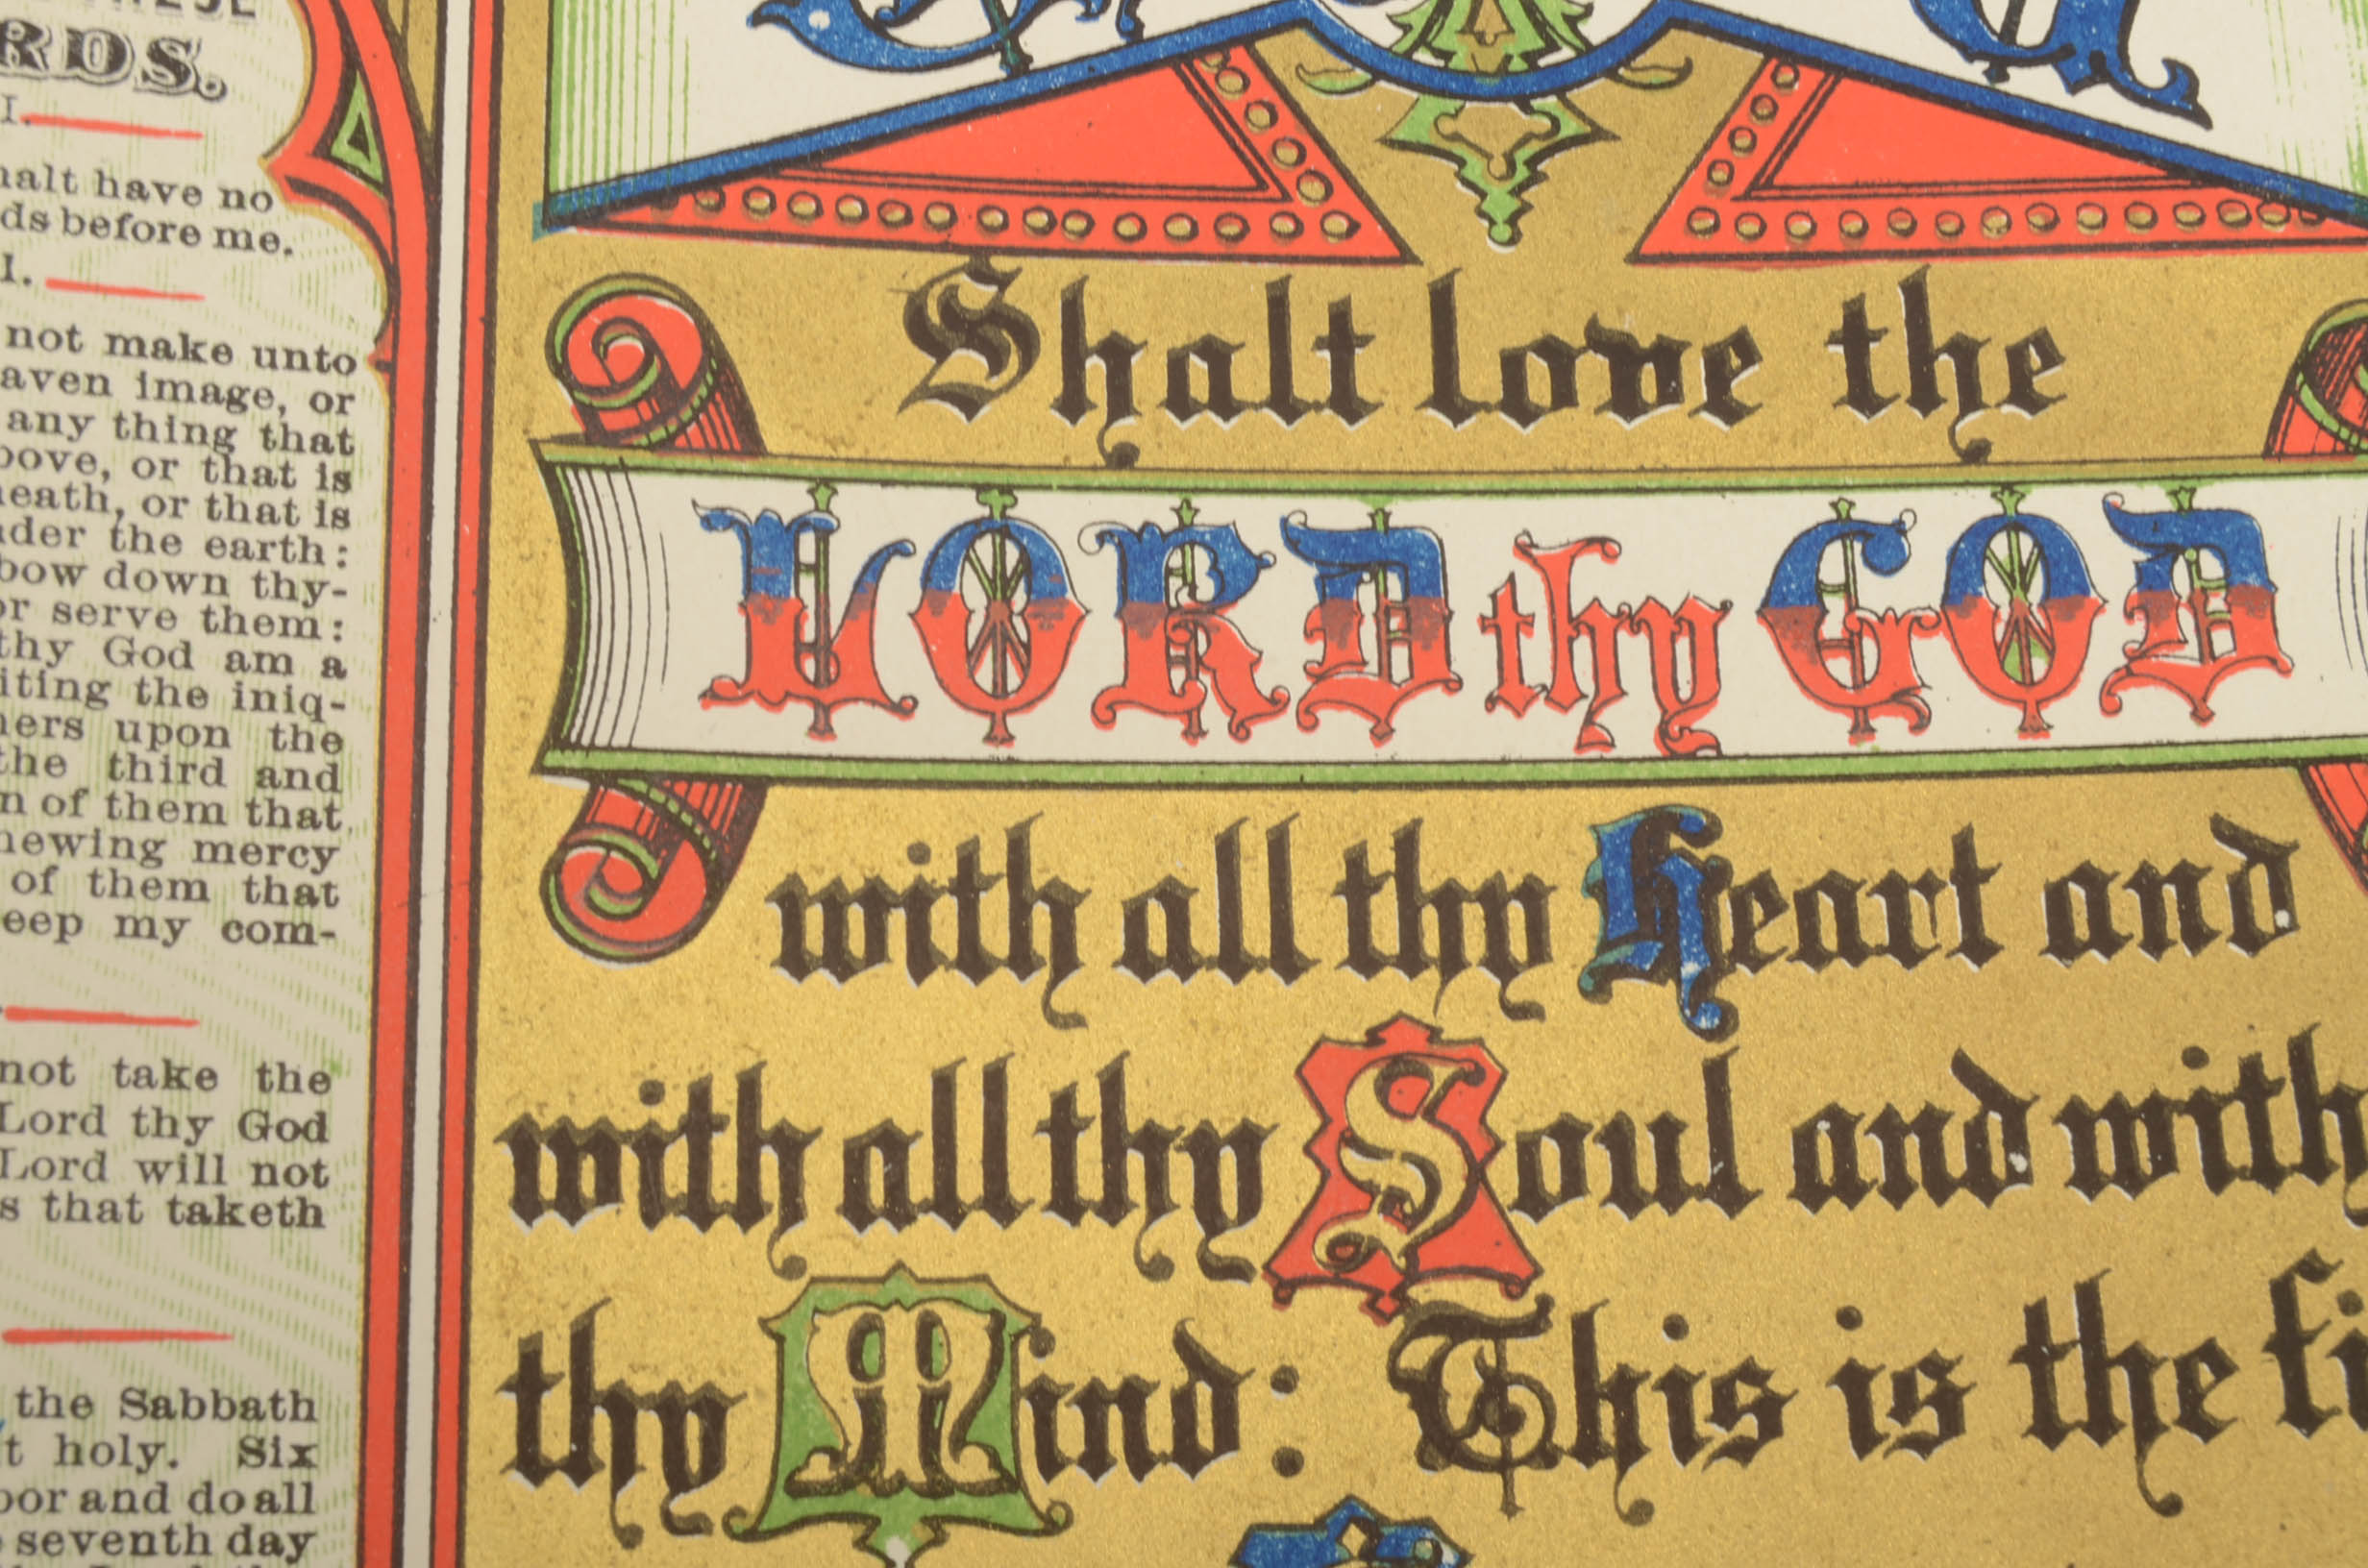 RDS.
I.
have no
before me.
I.
not make unto
image, or
any thing that
or that is
or that is
the earth:
bow down thy-
or serve them:
thy God am a
the iniq-
upon the
the third and
of them that
mercy
of them that
my com-
not take the
Lord thy God
Lord will not
that taketh
the Sabbath
holy. Six
and do all
seventh day
Shalt love the
LORD thy GOD
with all thy Heart and
with all thy Soul and with
thy Mind: This is the fi